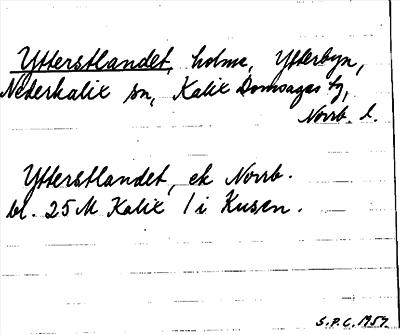 Ytterstlandet, holme, Ytterbyn,
Nederkalix sn, Kalix Domsagas tg,
Norrb. l.
Ytterstlandet, ek Norrb.
bl. 25 M Kalix / i Kusen.
S.P.C. 1959.